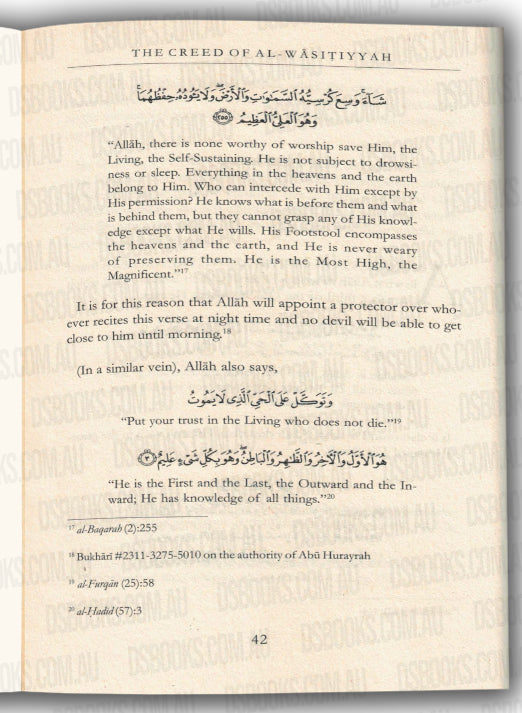 THE CREED OF AL-WĀSIṬIYYAH
شَآءَ وَسِعَ كُرْسِيُّهُ ٱلسَّمَٰوَٰتِ وَٱلْأَرْضَ وَلَا يَـُٔودُهُۥ حِفْظُهُمَا
وَهُوَ ٱلْعَلِيُّ ٱلْعَظِيمُ ﴿٢٥٥﴾
“Allāh, there is none worthy of worship save Him, the
Living, the Self-Sustaining. He is not subject to drowsi-
ness or sleep. Everything in the heavens and the earth
belong to Him. Who can intercede with Him except by
His permission? He knows what is before them and what
is behind them, but they cannot grasp any of His knowl-
edge except what He wills. His Footstool encompasses
the heavens and the earth, and He is never weary
of preserving them. He is the Most High, the
Magnificent.”¹⁷
It is for this reason that Allāh will appoint a protector over who-
ever recites this verse at night time and no devil will be able to get
close to him until morning.¹⁸
(In a similar vein), Allāh also says,
وَتَوَكَّلْ عَلَى ٱلْحَيِّ ٱلَّذِى لَا يَمُوتُ
“Put your trust in the Living who does not die.”¹⁹
هُوَ ٱلْأَوَّلُ وَٱلْءَاخِرُ وَٱلظَّٰهِرُ وَٱلْبَاطِنُ وَهُوَ بِكُلِّ شَىْءٍ عَلِيمٌ ﴿٣﴾
“He is the First and the Last, the Outward and the In-
ward; He has knowledge of all things.”²⁰
¹⁷ al-Baqarah (2):255
¹⁸ Bukhārī #2311-3275-5010 on the authority of Abū Hurayrah
¹⁹ al-Furqān (25):58
²⁰ al-Ḥadīd (57):3
42
DSBOOKS.COM.AU